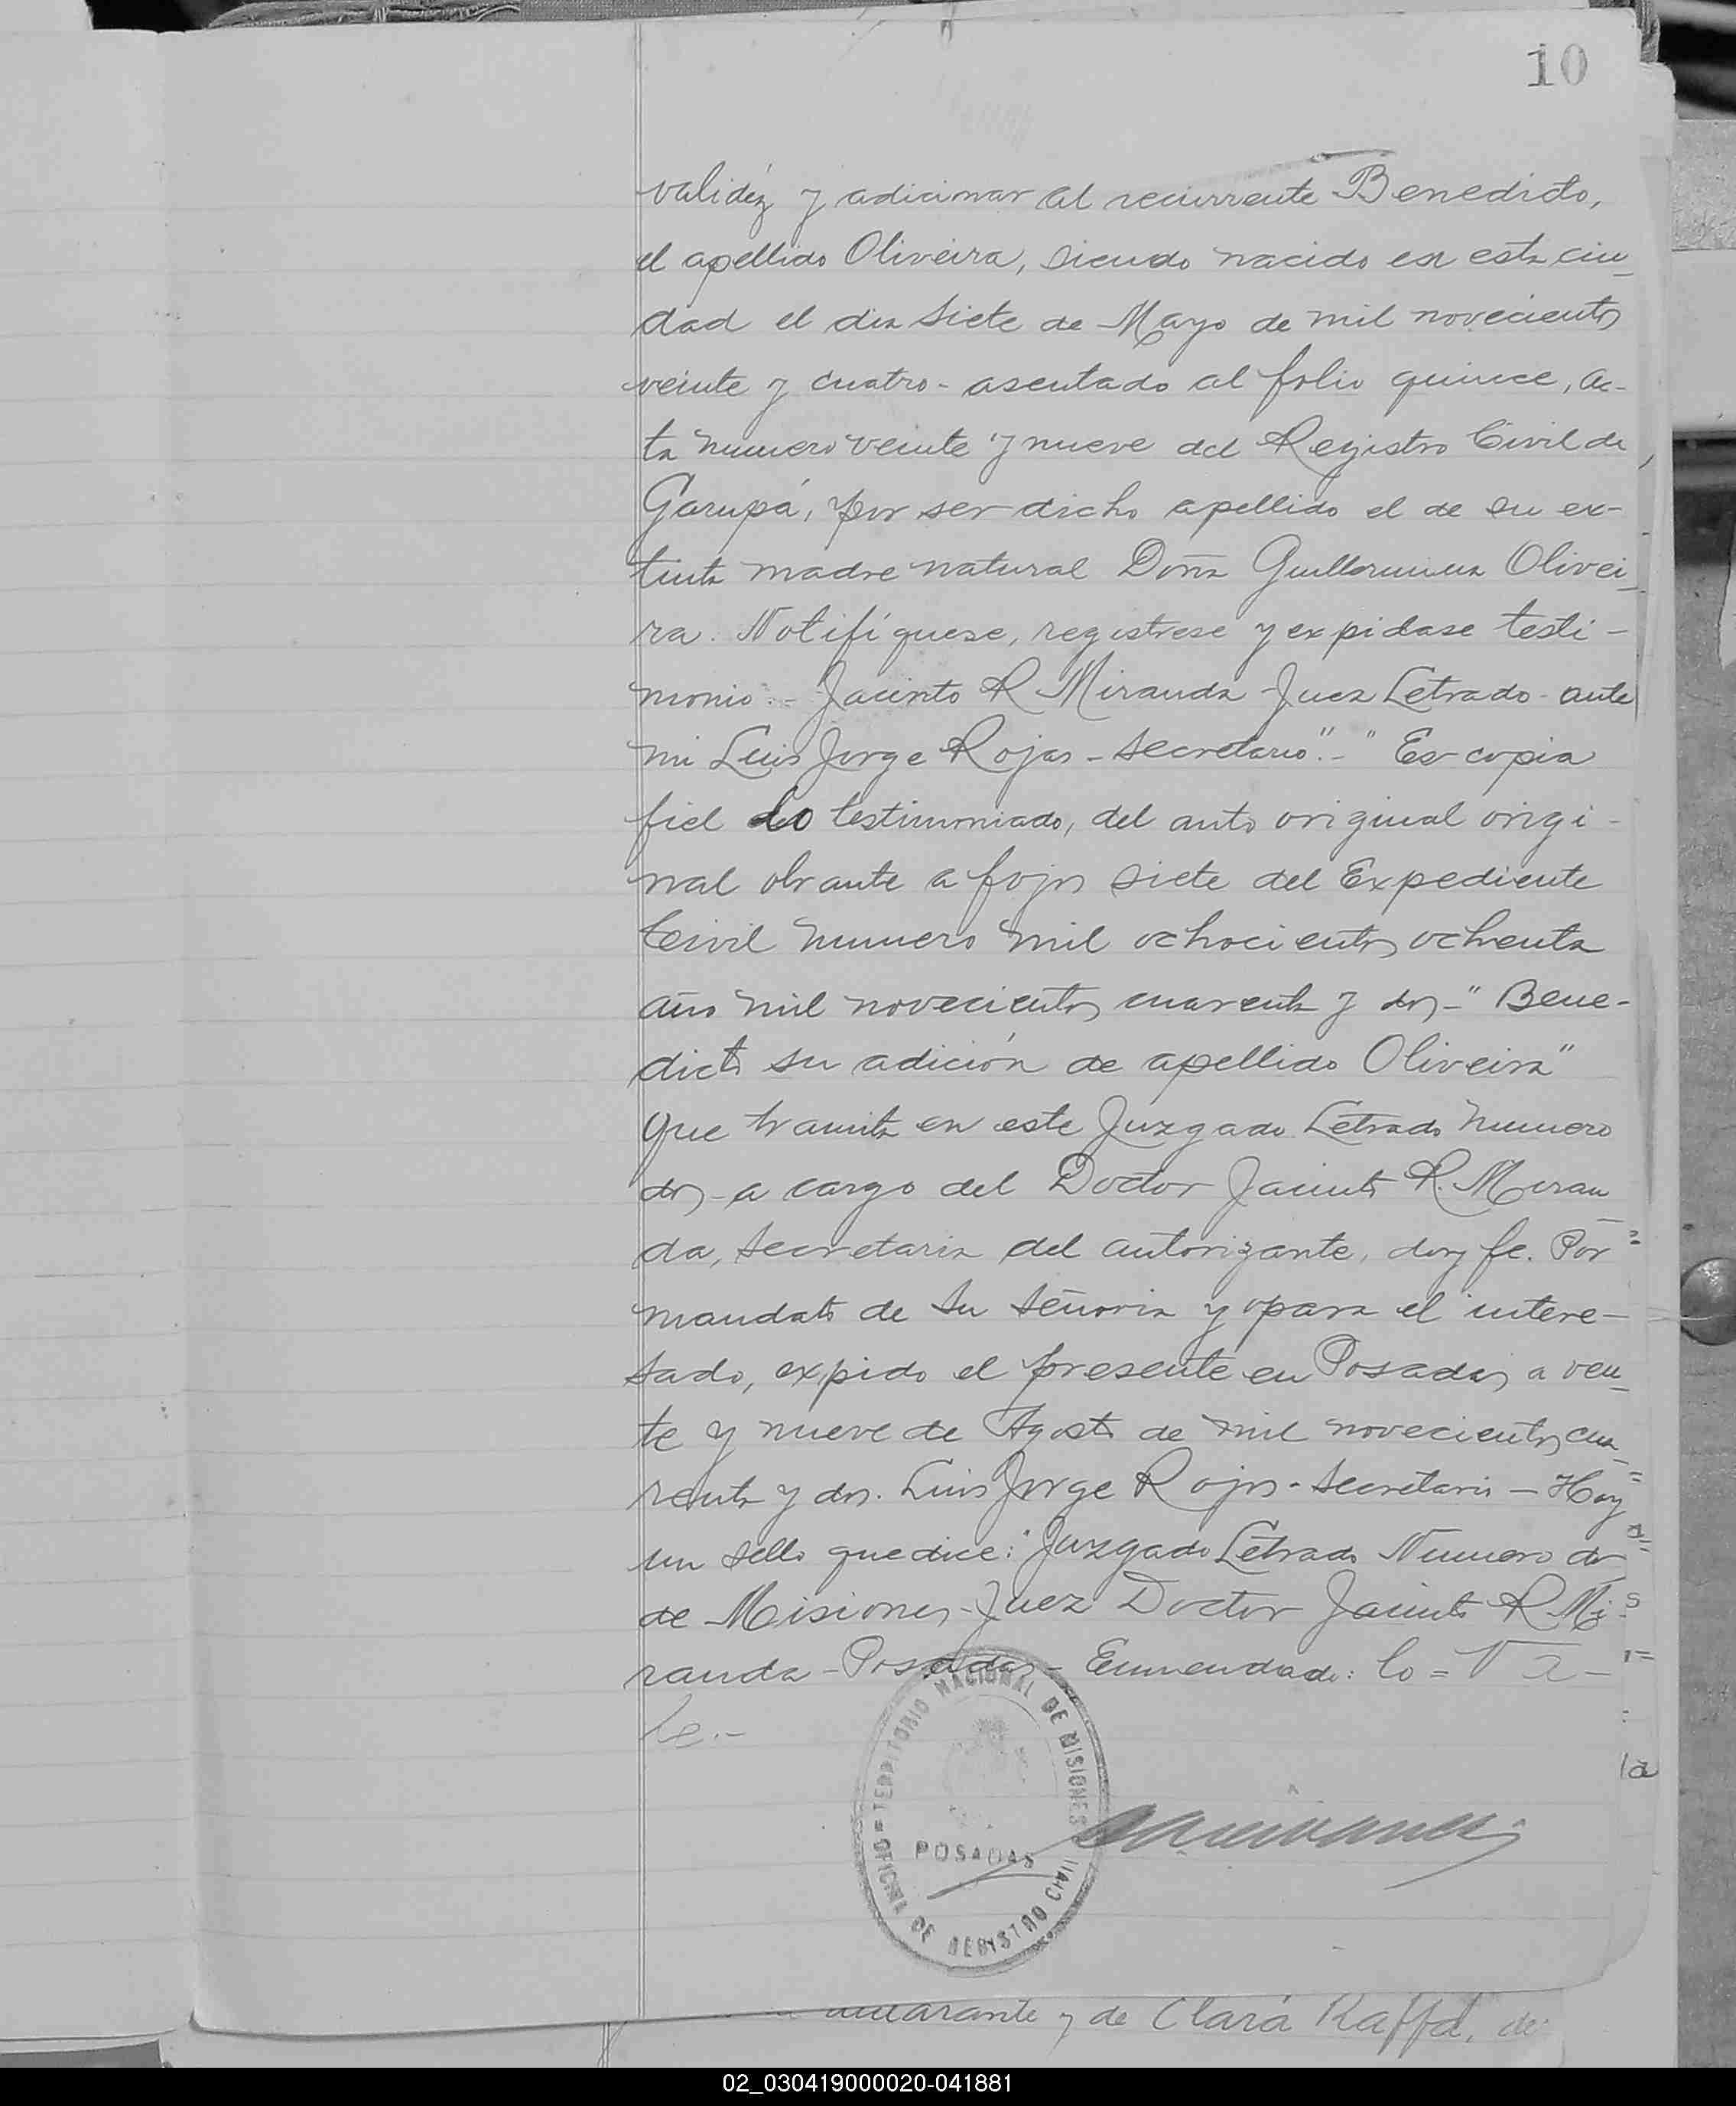 10
validéz y adicionar al recurrente Benedicto,
el apellido Oliveira, siendo nacido en esta ciu_
dad el dia siete de Mayo de mil novecientos
veinte y cuatro - asentado al folio quince, ac-
ta numero veinte y nueve del Registro Civil de
Garupá, por ser dicho apellido el de su ex-
tinta madre natural Doña Guillermina Olivei_
ra. Notifíquese, registrese y expidase testi-
monio.- Jacinto R Miranda Juez Letrado - ante
mi Luis Jorge Rojas - secretario".- "Es copia
fiel lo testimoniado, del auto original origi-
nal obrante a fojas siete del Expediente
Civil numero mil ochocientos ochenta
año mil novecientos cuarenta y dos - "Bene-
dicto su adición de apellido Oliveira"
que tramita en este Juzgado Letrado numero
dos - a cargo del Doctor Jacinto R. Miran_
da, secretaria del autorizante, doy fe. Por
mandato de su señoria y para el intere-
sado, expido el presente en Posadas a vein_
te y nueve de Agosto de mil novecientos cua_
renta y dos. Luis Jorge Rojas - secretario - Hay
un sello que dice: "Juzgado Letrado Numero dos
de Misiones - Juez Doctor Jacinto R Mi-
randa - Posadas - Enmendado: lo = Va-
le.-
TERRITORIO NACIONAL DE MISIONES
POSADAS
OFICINA DE REGISTRO CIVIL
y de Clara Raffa, de
02_030419000020-041881